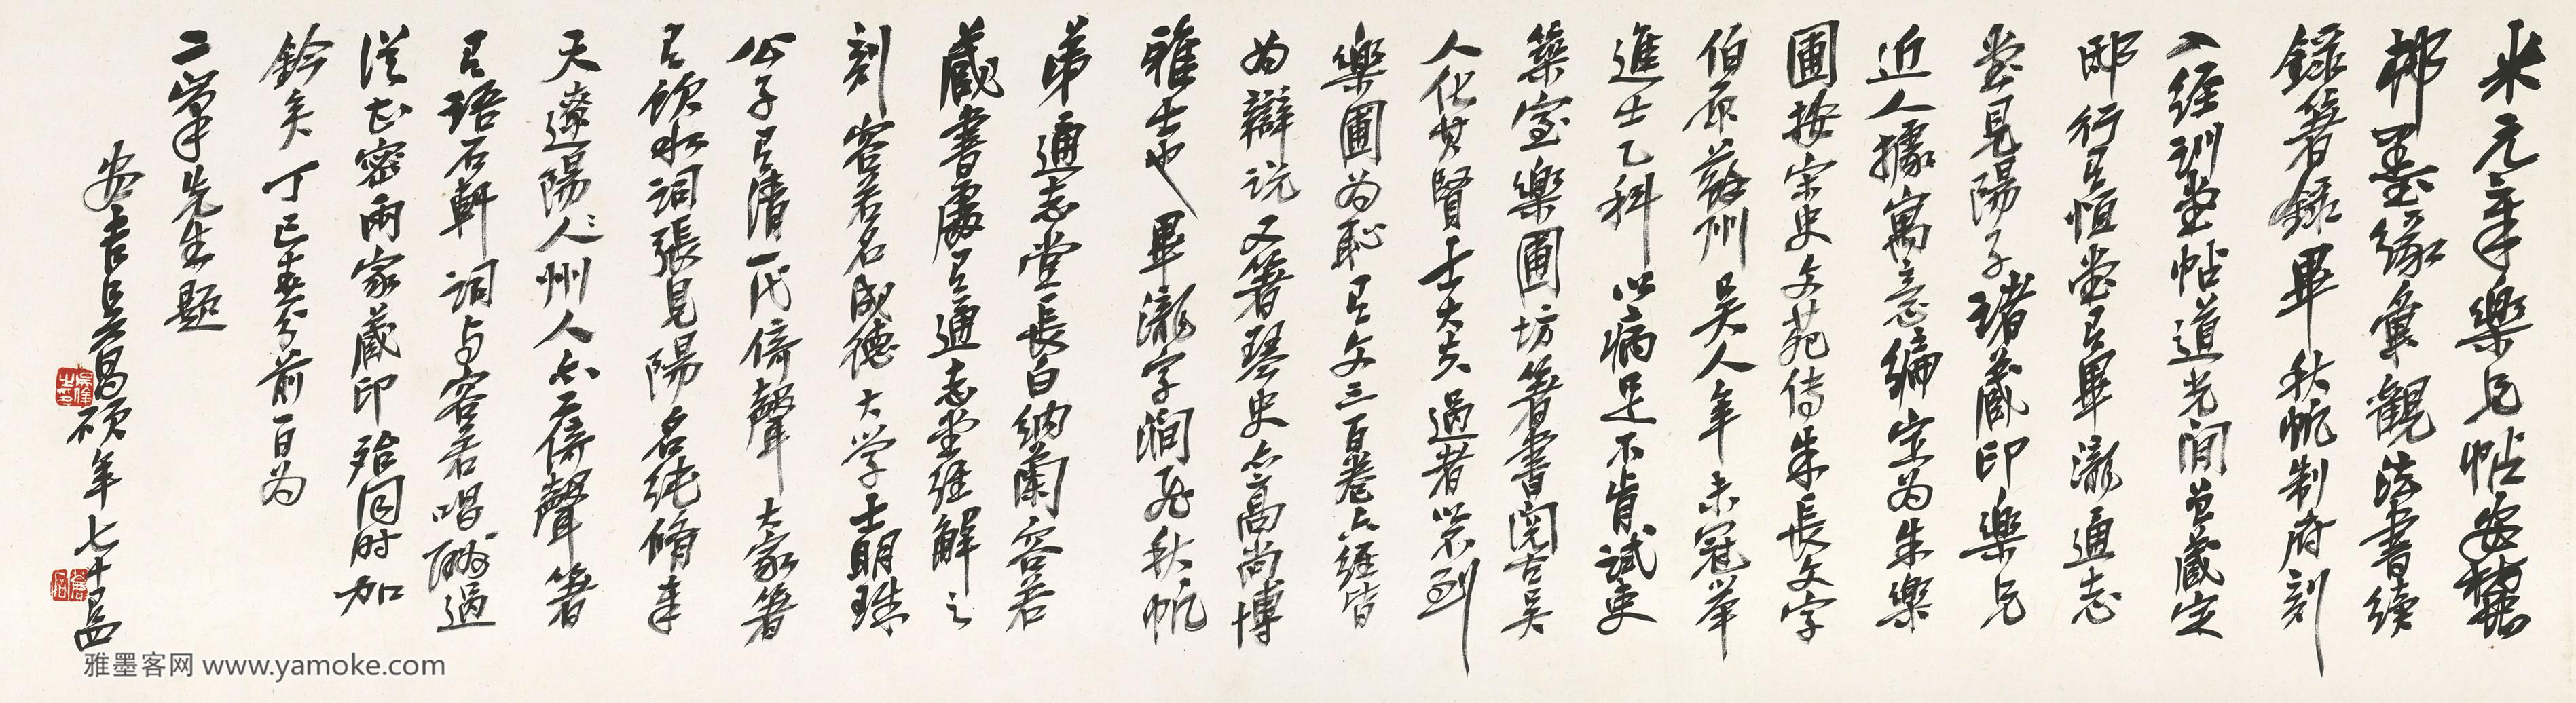 米元章樂兄帖安麓
邨墨緣彙觀法書續
錄著錄畢秋帆制府刻
入經訓堂帖道光間曾藏定
邸行有恒堂有畢瀧通志
堂見陽子諸藏印樂兄
近人據寓意編定為朱樂
圃按宋史文苑傳朱長文字
伯原蘇州吳人年未冠舉
進士乙科以病足不肯試吏
築室樂圃坊著書閱古吳
人化其賢士大夫過者以不到
樂圃為恥有文三百卷六經皆
為辯說又著琴史亦高尚博
雅士也畢瀧字澗飛秋帆
弟通志堂長白納蘭容若
藏書處有通志堂經解之
刻容若名成德大學士明珠
公子有清一代倚聲大家著
有飲水詞張見陽名純脩奉
天遼陽人人州人亦工倚聲著
有語石軒詞與容若唱酬過
從甚密兩家藏印殆同時加
鈐矣丁巳春分前一日為
二峯先生題
安吉吳昌碩年七十四
雅墨客网 www.yamoke.com